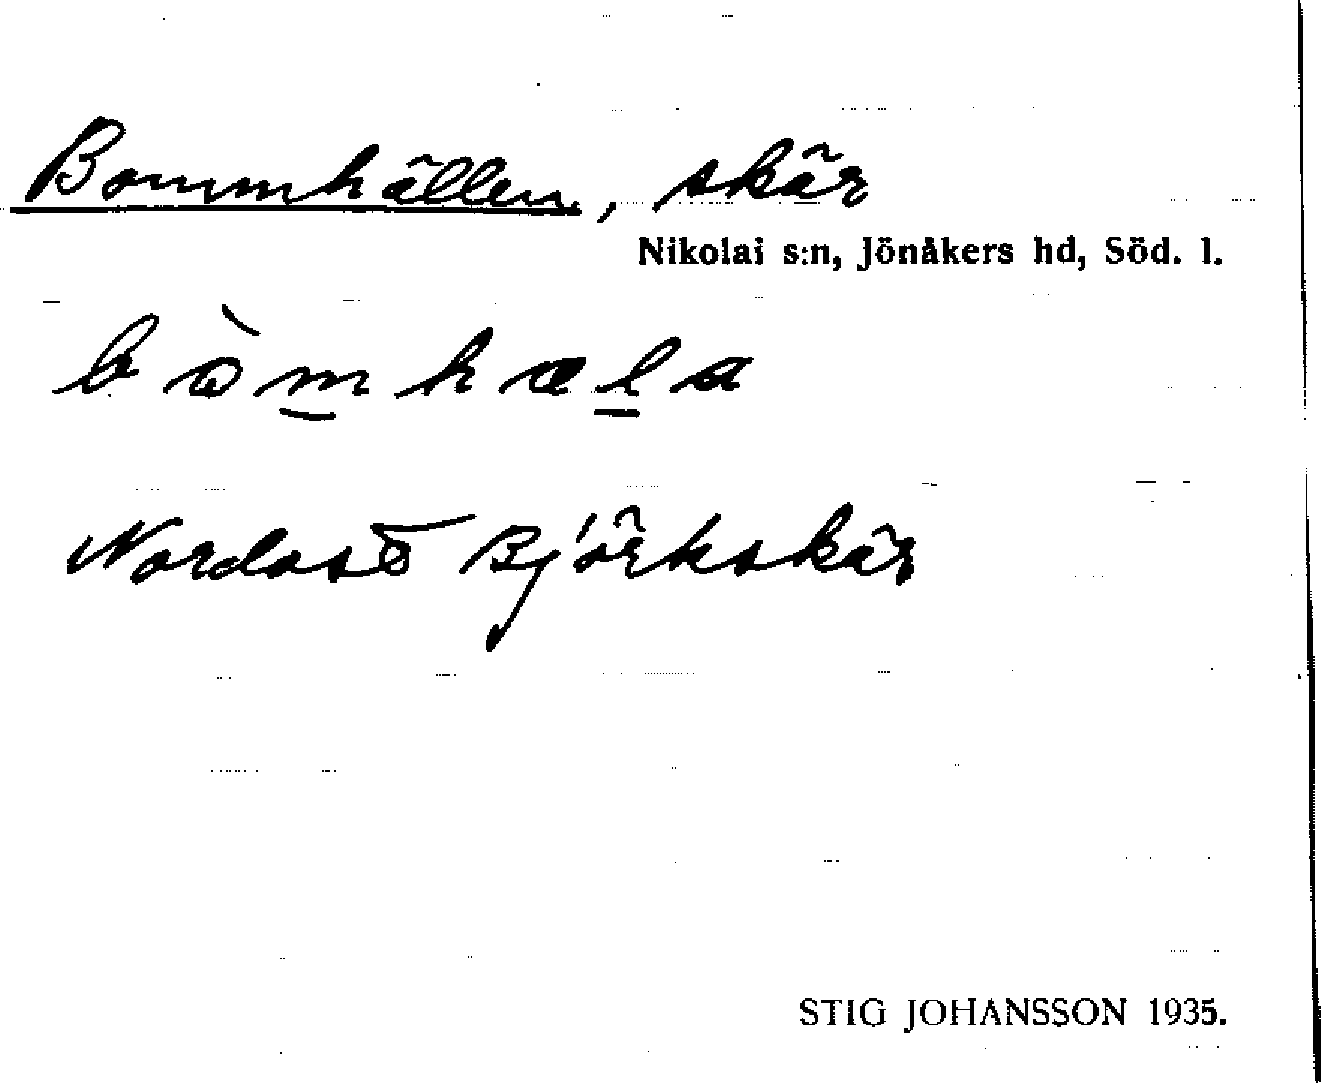 Bommhällen, skär
Nikolai s:n, Jönåkers hd, Söd. l.
bòm̲hæl̲a
Nordost Björkskär
STIG JOHANSSON 1935.